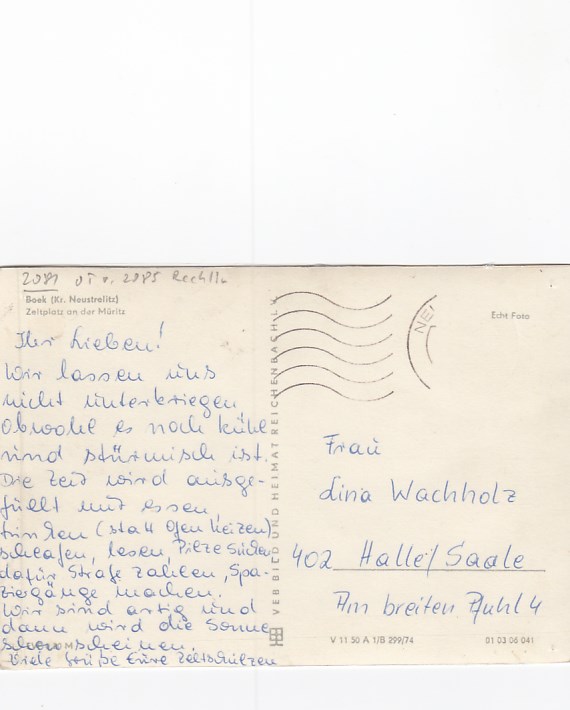 2081 OT v. 2085 Rechlin
Boek (Kr. Neustrelitz)
Zeltplatz an der Müritz
Ihr Lieben!
Wir lassen uns
nicht unterkriegen
obwohl es noch kühl
und stürmisch ist.
Die Zeit wird ausge-
füllt mit essen,
trinken (statt Ofen heizen)
schlafen, lesen, Pilze suchen
dafür Strafe zahlen, Spa-
ziergänge machen.
Wir sind artig und
dann wird die Sonne
schon scheinen.
Viele Grüße Eure Zeltschützen
VEB BILD UND HEIMAT REICHENBACH I. V.
NE
Echt Foto
Frau
Lina Wachholz
402 Halle/Saale
Am breiten Pfuhl 4
V 11 50 A 1/B 299/74
01 03 06 041